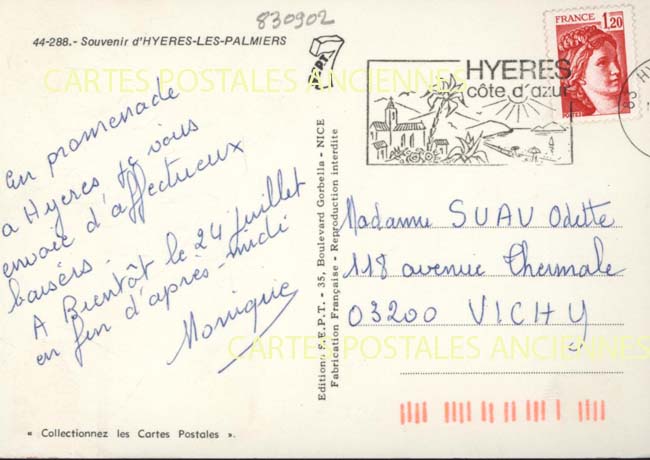 830902
44-288.- Souvenir d'HYERES-LES-PALMIERS
CARTES POSTALES ANCIENNES
En promenade
a Hyeres je vous
envoie d'affectueux
baisers.
A Bientôt le 24 juillet
en fin d'après-midi
Monique
« Collectionnez les Cartes Postales ».
Edition S.E.P.T. - 35, Boulevard Gorbella - NICE
Fabrication Française - Reproduction interdite
HYERES
côte d'azur
FRANCE
1,20
83 HY
Madame SUAU Odette
118 avenue Thermale
03200 VICHY
CARTES POSTALES ANCIENNES